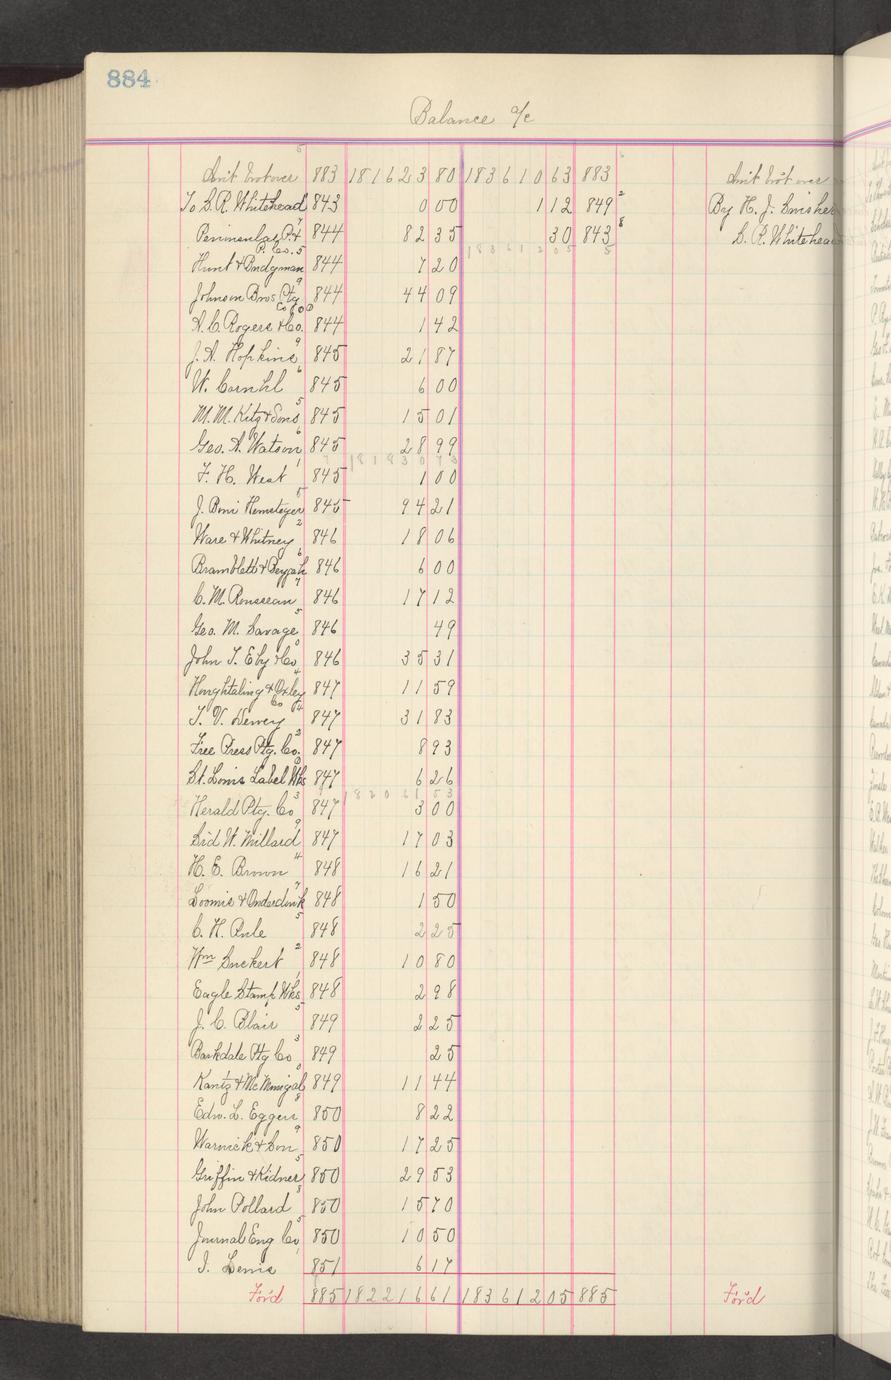 884
Balance a/c
Amt brot over 883 18162380 18361063 883 Amt brot over
To S. R. Whitehead 843 000 112 849 By H. J.
Peninsular P. & P. Co. 844 8235 30 843 S. R. Whitehead
18361205
Hunt & Bridgman 844 720
Johnson Bros. Ptg Co 844 4409
A. C. Rogers & Co. 844 142
J. A. Hopkins 845 2187
W. 845 600
M. M. Kitz & Sons 845 1501
Geo. A. Watson 845 2899
18183073
F. H. West 845 100
J. 845 9421
Ware & Whitney 846 1806
Bramblett & 846 600
C. M. Rousseau 846 1712
Geo. M. Savage 846 49
John T. Eby & Co 846 3531
Houghtaling & Oxley Co 847 1159
T. V. Dewey 847 3183
Free Press Ptg. Co. 847 893
St. Louis Label Wks 847 626
18202153
Herald Ptg. Co 847 300
Sid W. Millard 847 1703
H. E. Brown 848 1621
Loomis & Onderdonk 848 150
C. H. 848 225
Wm Suckert 848 1080
Eagle Stamp Wks 848 298
J. C. Blair 849 225
Barkdale Ptg Co 849 25
Kantz & McMonigal 849 1144
Edw. L. Eggers 850 822
Warnick & Son 850 1725
Griffin & Kidner 850 2953
John Pollard 850 1570
Journal Eng Co 850 1050
I. Lewis 851 617
Ford 885 18221661 18361205 885 Ford